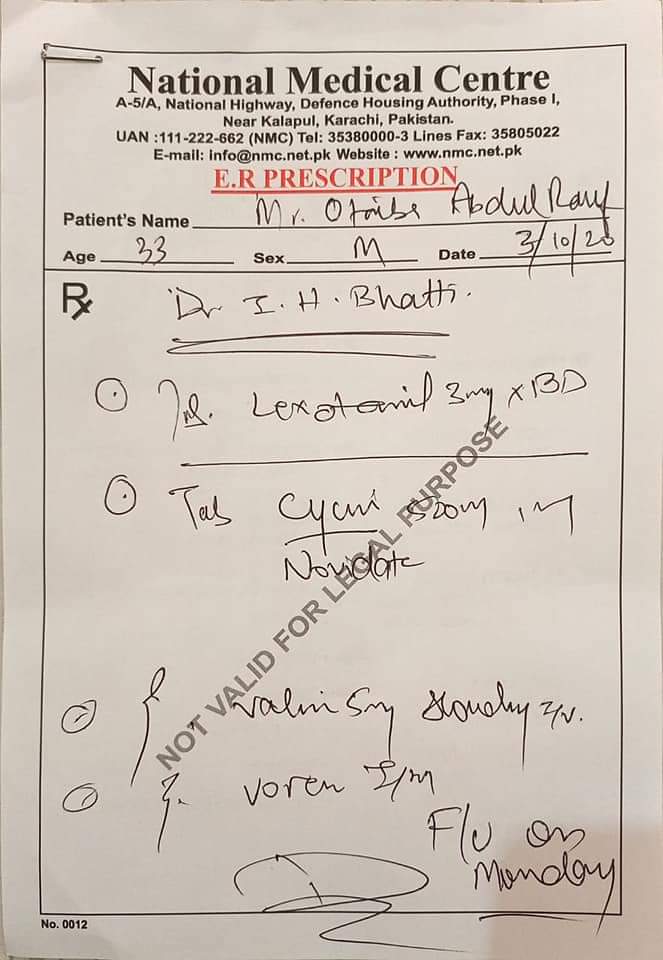 National Medical Centre
A-5/A, National Highway, Defence Housing Authority, Phase I,
Near Kalapul, Karachi, Pakistan.
UAN :111-222-662 (NMC) Tel: 35380000-3 Lines Fax: 35805022
E-mail: info@nmc.net.pk Website : www.nmc.net.pk
E.R PRESCRIPTION
Patient's Name Mr. Abdul Rauf
Age 33 Sex M Date 3/10/20
Rx Dr I. H. Bhatti.
3mg x BD
Tab
Novidate
NOT VALID FOR LEGAL PURPOSE
5mg I/V.
Voren I/M
F/U on
Monday
No. 0012